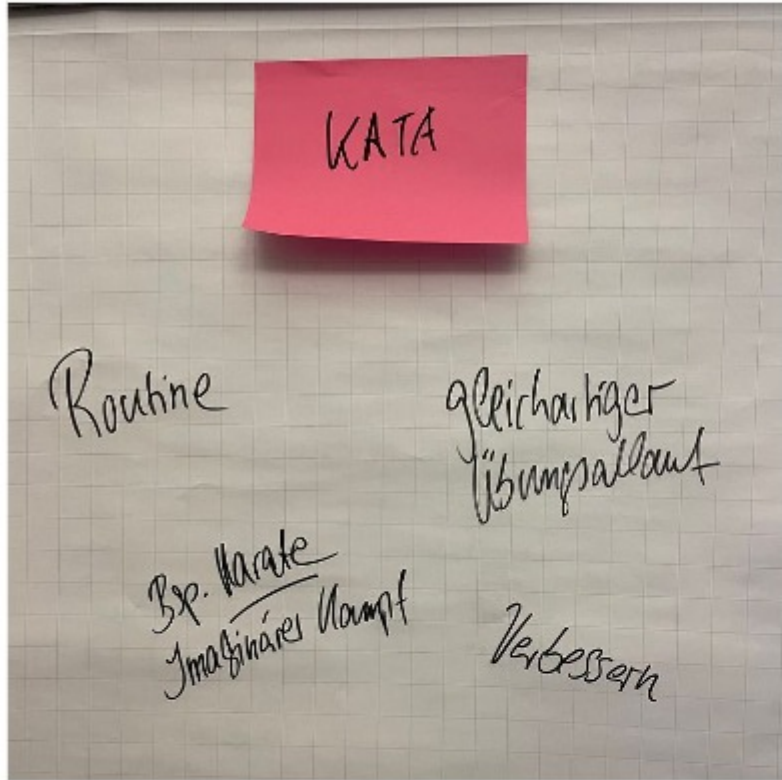 KATA
Routine
gleichartiger
Übungsablauf
Bsp. Karate
Imaginärer Kampf
Verbessern